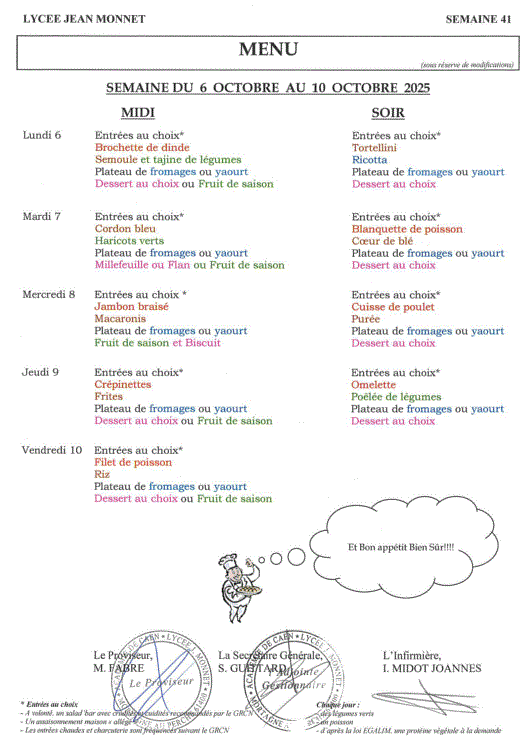 LYCEE JEAN MONNET SEMAINE 41
MENU
(sous réserve de modifications)
SEMAINE DU 6 OCTOBRE AU 10 OCTOBRE 2025
MIDI SOIR
Lundi 6 Entrées au choix* Entrées au choix*
Brochette de dinde Tortellini
Semoule et tajine de légumes Ricotta
Plateau de fromages ou yaourt Plateau de fromages ou yaourt
Dessert au choix ou Fruit de saison Dessert au choix
Mardi 7 Entrées au choix* Entrées au choix*
Cordon bleu Blanquette de poisson
Haricots verts Cœur de blé
Plateau de fromages ou yaourt Plateau de fromages ou yaourt
Millefeuille ou Flan ou Fruit de saison Dessert au choix
Mercredi 8 Entrées au choix * Entrées au choix*
Jambon braisé Cuisse de poulet
Macaronis Purée
Plateau de fromages ou yaourt Plateau de fromages ou yaourt
Fruit de saison et Biscuit Dessert au choix
Jeudi 9 Entrées au choix* Entrées au choix*
Crépinettes Omelette
Frites Poëlée de légumes
Plateau de fromages ou yaourt Plateau de fromages ou yaourt
Dessert au choix ou Fruit de saison Dessert au choix
Vendredi 10 Entrées au choix*
Filet de poisson
Riz
Plateau de fromages ou yaourt
Dessert au choix ou Fruit de saison
Et Bon appétit Bien Sûr!!!!
Le Proviseur, La Secrétaire Générale, L'Infirmière,
M. FABRE S. GUITTARD I. MIDOT JOANNES
ACADEMIE DE CAEN * LYCEE J. MONNET
Le Proviseur
MORTAGNE AU PERCHE
ACADEMIE DE CAEN * LYCEE J. MONNET
Adjointe
Gestionnaire
MORTAGNE
* Entrées au choix Chaque jour :
- A volonté, un salad'bar avec crudités et cuidités recommandés par le GRCN - des légumes verts
- Un assaisonnement maison « allégé » - du poisson
- Les entrées chaudes et charcuterie sont fréquences suivant le GRCN - d'après la loi EGALIM, une protéine végétale à la demande